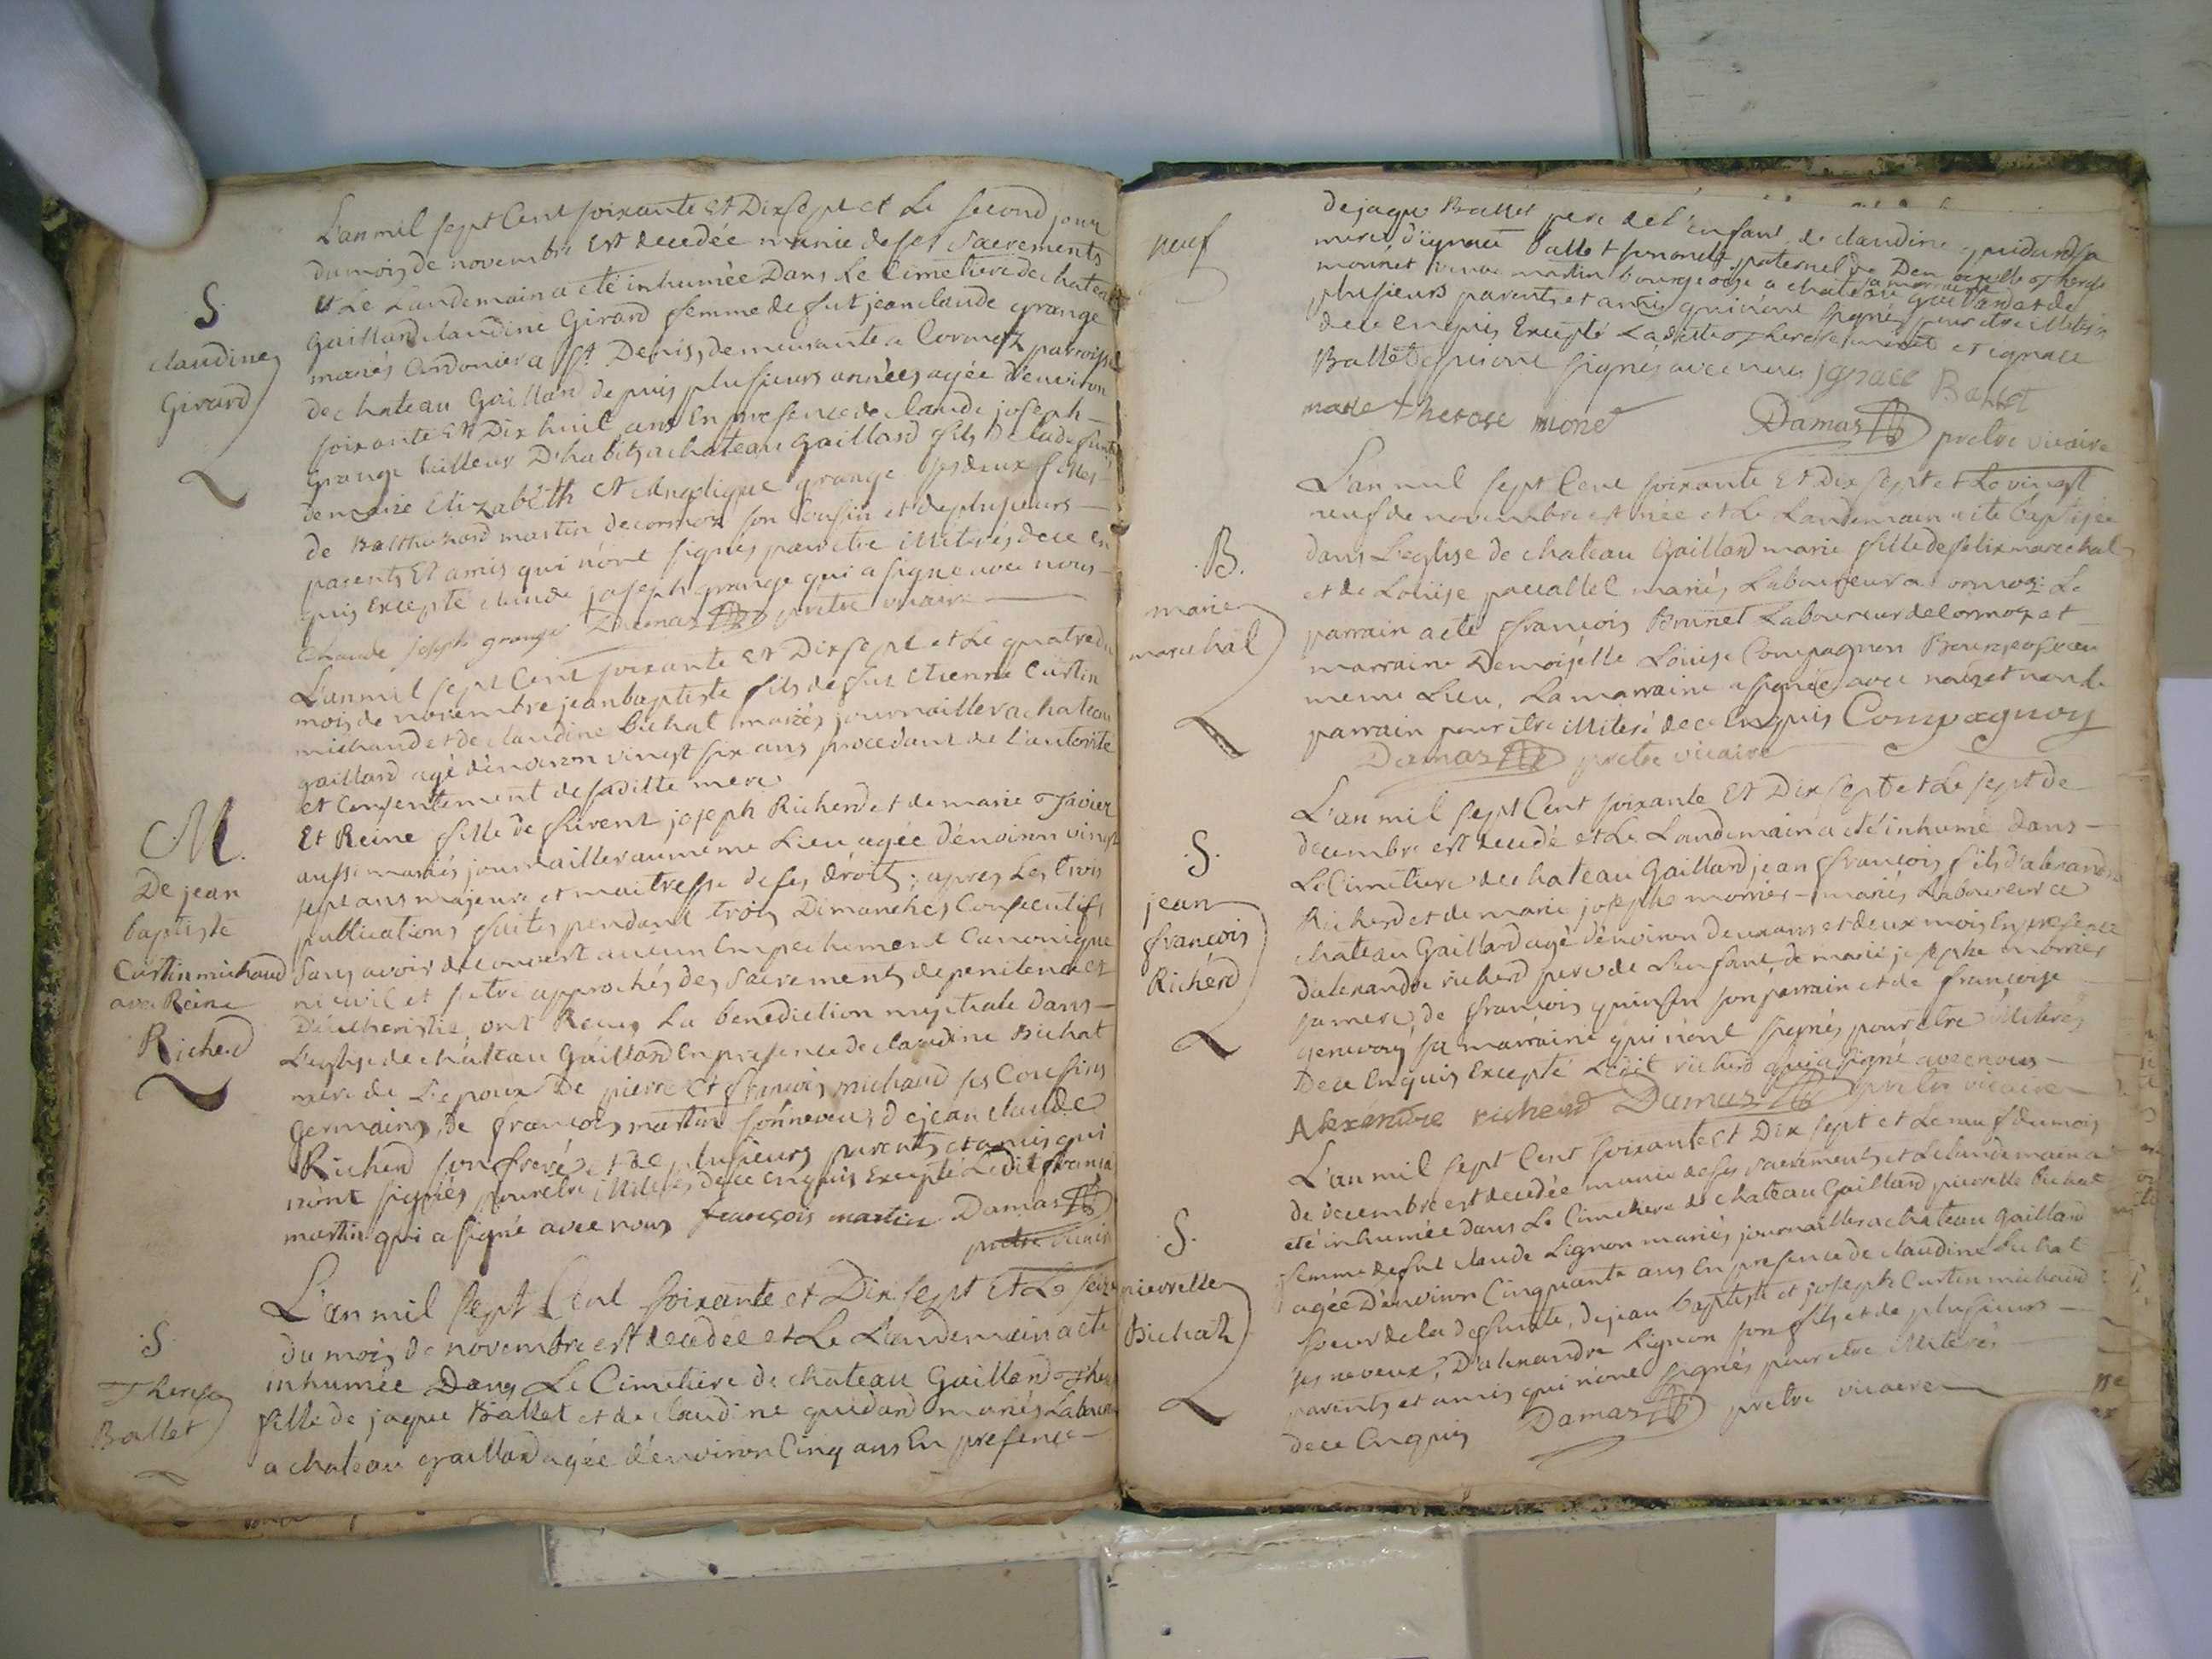 S.
claudine
Girard
L'an mil sept Cent soixante Et Dix sept et Le second jour
du mois de novembre Est decedée munie de ses sacrements
et Le Landemain a été inhumée Dans Le Cimetiere de chateau
Gaillard claudine Girard femme de fut jean claude grange
mariés Cordonier a St Denis, demeurante a Cormoz parroisse
de chateau Gaillard depuis plusieurs années agée d'environ
soixante Et Dix huit ans En presence de claude joseph
grange tailleur D'habits a chateau gaillard fils De la defunte
de marie Elizabeth et Angelique grange ses deux filles
de Balthazard martin de cormoz son Cousin et de plusieurs
parents Et amis qui n'ont signés pour etre illiterés de ce en
quis Excepté claude joseph grange qui a signé avec nous
Claude joseph grange Damas prêtre vicaire
M.
De jean
baptiste
Curtin michaud
avec Reine
Richerd
L'an mil sept Cent soixante Et Dix sept et Le quatre du
mois de novembre jean baptiste fils de fut Etienne Curtin
michaud et de claudine bichat mariés journaillers a chateau
gaillard agé d'environ vingt six ans procedant de l'autorité
et Consentement de sa ditte mere
Et Reine fille de furent joseph Richerd et de marie
aussi mariés journaillers au même Lieu agée d'environ vingt
sept ans majeure et maitresse de ses droits; apres Les trois
publications faites pendant trois Dimanches Consecutifs
sans avoir decouvert aucun Empechement Canonique
ni civil et s'etre approchés des Sacrements de penitence et
D'eucheristie, ont Reçus La benediction nuptiale dans
L'eglise de château Gaillard En presence de claudine Bichat
mere de L'epoux De pierre Et françois michaud ses Cousins
Germains, de françois martin son neveu, de jean claude
Richerd son frere et de plusieurs parents et amis qui
n'ont signés pour etre illiterés de ce enquis Excepté Ledit françois
martin qui a signé avec nous françois martin Damas
prêtre vicaire
S.
Therese
Ballet
L'an mil sept Cent soixante et Dix sept Et Le seize
du mois de novembre est decedée et Le Landemain a été
inhumée Dans Le Cimetiere de chateau Gaillard
fille de jaque Ballet et de claudine guidard mariés
a chateau gaillard agée d'environ Cinq ans En presence
de jaque Ballet pere de L'enfant, de claudine guidard sa
mere, d'ignace Ballet son oncle paternel de Demoiselle Therese
monnet martin bourgeoise a chateau gaillard et de
sa marraine
plusieurs parents et amis qui n'ont signés pour etre illiterés
de ce enquis Excepté Laditte Therese monet et ignace
Ballet qui ont signés avec nous Ignace Ballet
marie therese moné Damas prêtre vicaire
B.
marie
marechal
L'an mil sept Cent soixante Et Dix sept et Le vingt
neuf de novembre est née et Le Landemain a été baptisée
dans L'eglise de chateau Gaillard marie fille de felix marechal
et de Loüise mariés Laboureur a cormoz. Le
parrain a été françois Brunet Laboureur de Cormoz et
marraine Demoiselle Loüise Compagnon Bourgeoise au
même Lieu. La marraine a signée avec nous et non Le
parrain pour etre illiteré de ce Enquis Compagnon
Damas prêtre vicaire
S.
jean
françois
Richerd
L'an mil sept Cent soixante Et Dix sept et Le sept de
decembre est decedé et Le Landemain a été inhumé dans
Le Cimetiere de chateau Gaillard jean françois fils d'alexandre
Richerd et de marie josephe mornier mariés Laboureur a
chateau Gaillard agé d'environ deux ans et deux mois En presence
d'alexandre richerd pere de L'enfant, de marie josephe mornier
sa mere, de françois son parrain et de françoise
sa marraine qui n'ont signés pour etre illiterés
De ce Enquis Excepté Ledit richerd qui a signé avec nous
Alexendre richerd Damas prêtre vicaire
S.
pierrette
Bichat
L'an mil sept Cent soixante Et Dix sept et Le neuf du mois
de decembre est decedée munie de ses sacrements et Le landemain a
été inhumée dans Le Cimetiere de chateau Gaillard pierrette bichat
femme de fut claude Lignon mariés journaillers a chateau Gaillard
agée D'environ Cinquante ans En presence de claudine bichat
soeur de la defunte, de jean baptiste et joseph Curtin michaud
ses neveux, D'alexandre Lignon son fils et de plusieurs
parents et amis qui n'ont signés pour etre illiterés
de ce Enquis Damas prêtre vicaire